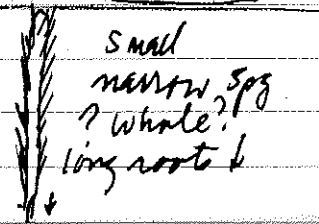 small
narrow, spg
? whole?
long roots ↓